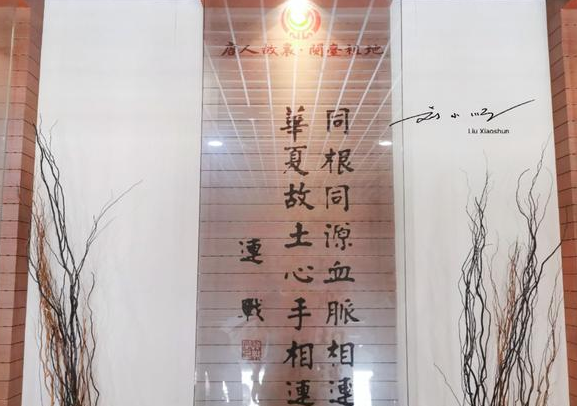 唐人故里·閩臺祖地
同根同源血脈相連
華夏故土心手相連
連戰
Liu Xiaoshun